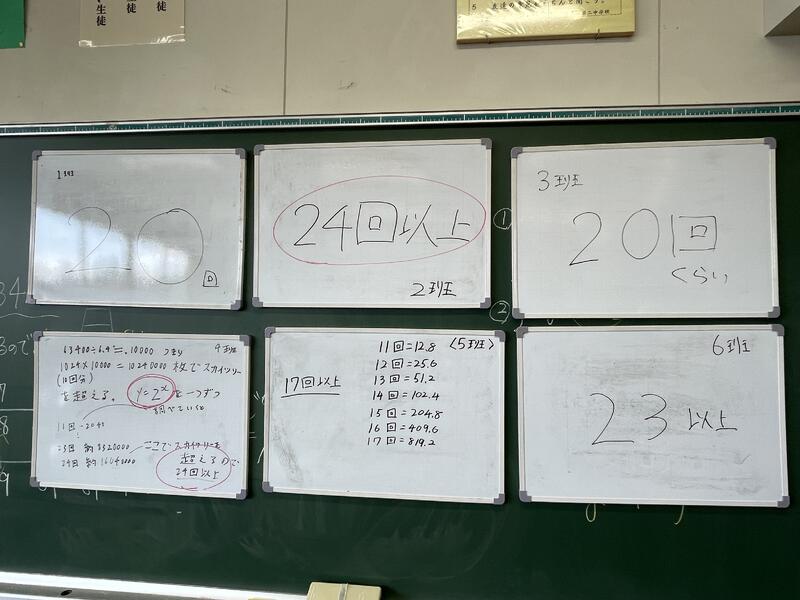 生徒
生徒
5 友達の
1班
20
回
24回以上
2班
3班
20回
くらい
①
②
4班
63400÷6.4≒10000 つまり
1024×10000=10240000 枚でスカイツリー
(10回分)
を超える。y=2ˣを一つずつ
調べていくと
11回=2048
⋮
23回 約8320000
ここでスカイツリーを
24回 約16040000
超えるので
24回以上
〈5班〉
17回以上
11回=12.8
12回=25.6
13回=51.2
14回=102.4
15回=204.8
16回=409.6
17回=819.2
6班
23以上
34
ので